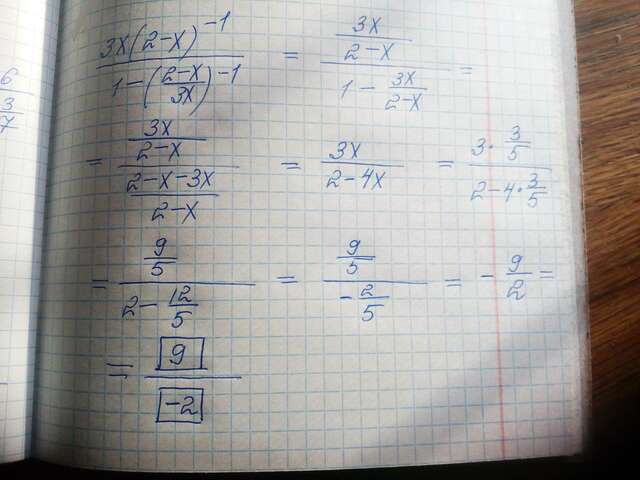 6
3
7
3x(2-x)^-1 / 1-((2-x)/3x)^-1 = (3x/(2-x)) / (1 - 3x/(2-x)) =
= (3x/(2-x)) / ((2-x-3x)/(2-x)) = 3x/(2-4x) = (3·3/5) / (2-4·3/5)
= (9/5) / (2-12/5) = (9/5) / (-2/5) = -9/2 =
= 9/-2